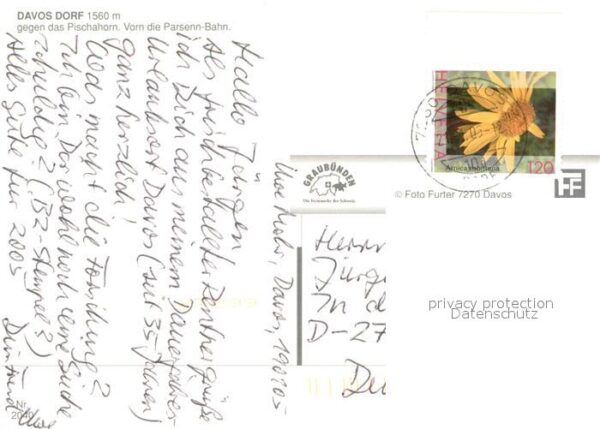 DAVOS DORF 1560 m
gegen das Pischahorn. Vorn die Parsenn-Bahn.
Hallo Jürgen
Als frischbestallter Rentner grüße
ich Dich aus meinem Dauer
Urlaubsort Davos (seit 35 Jahren)
ganz herzlich!
Was macht die Forschung?
Ich bin Dir wohl noch eine Suche
schuldig? (BZ-Stempel?)
Alles Gute für 2005
Dein Freund Uwe
Uwe Davos, 190105
GRAUBÜNDEN
Die Ferienecke der Schweiz
HELVETIA
Arnica montana
120
DAVOS
© Foto Furter 7270 Davos
Herrn
Jürge
In d
D-27
De
privacy protection
Datenschutz
Nr.